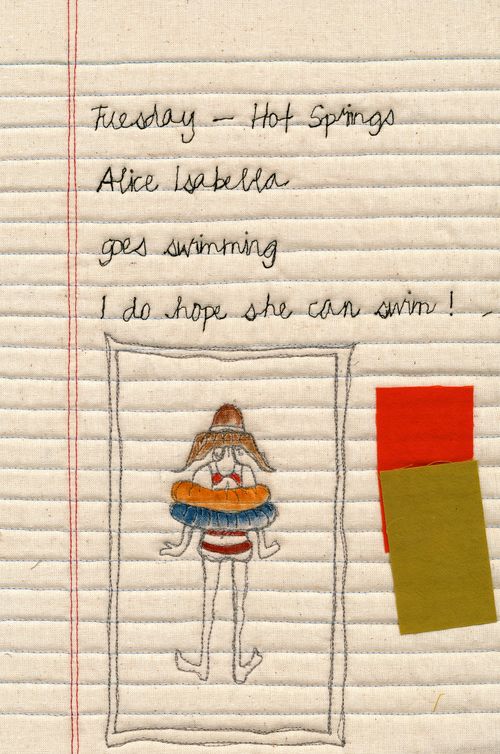 Tuesday – Hot Springs
Alice Isabella
goes swimming
I do hope she can swim!